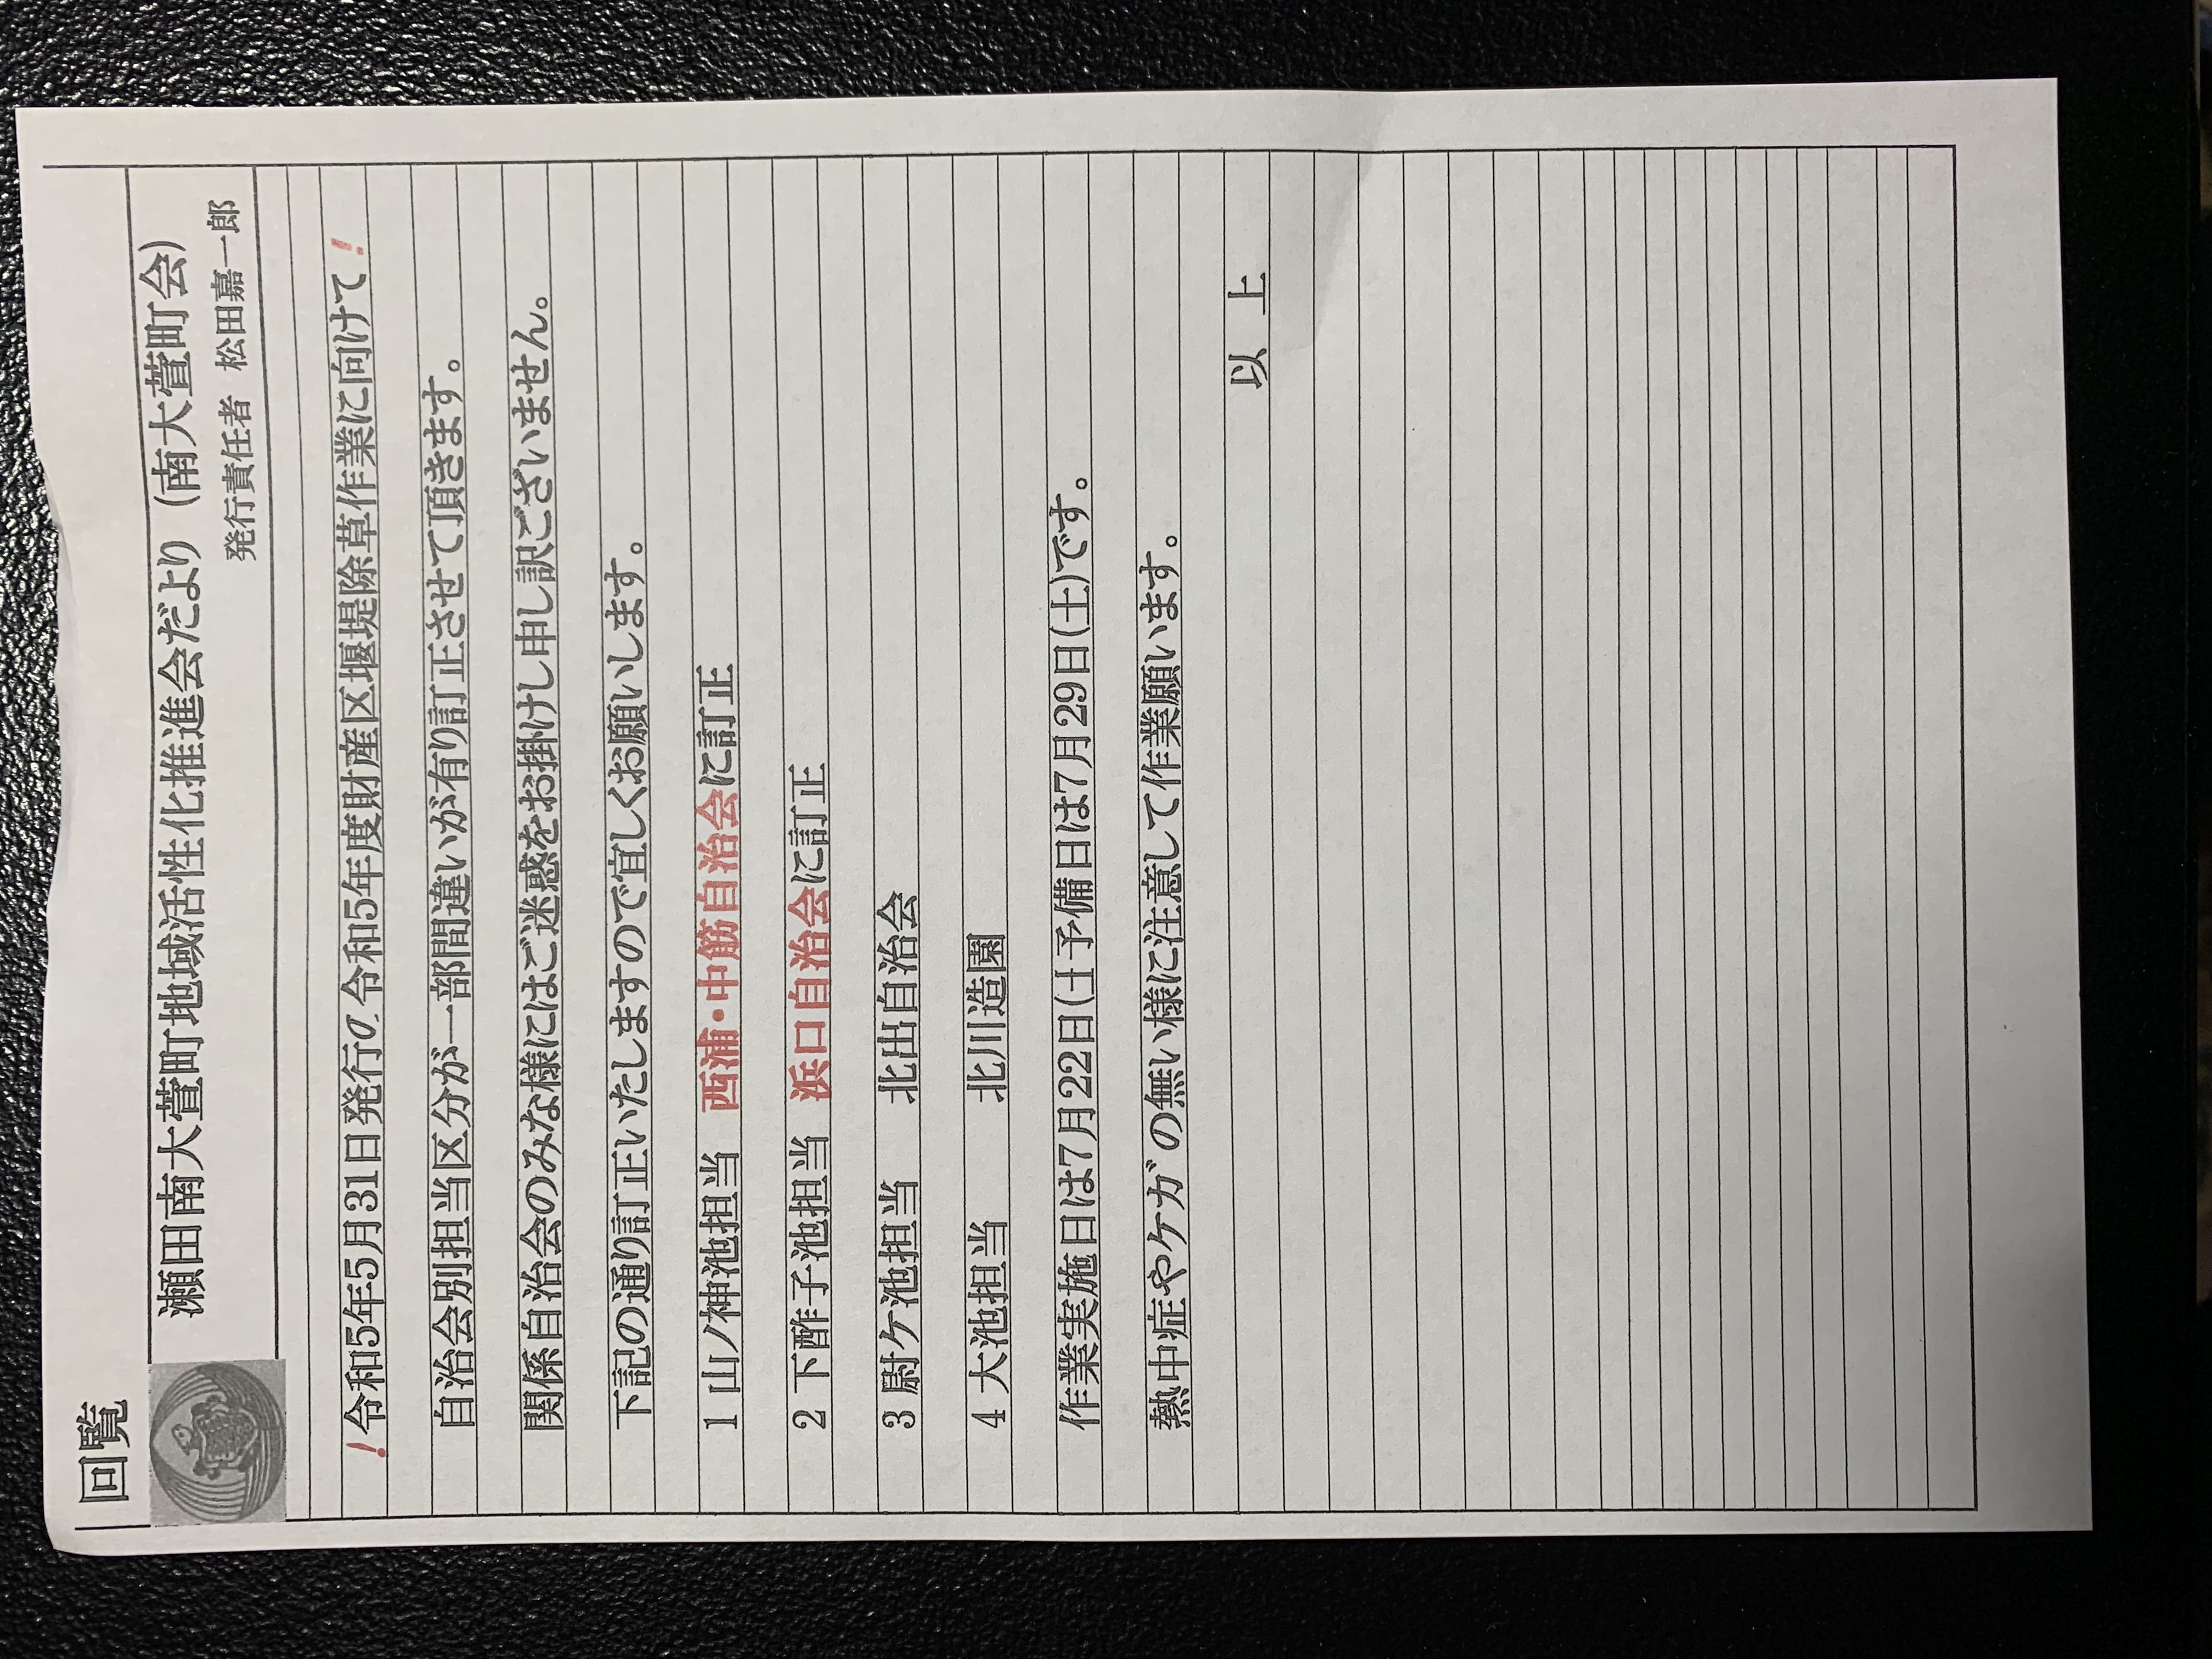 回覧
瀬田南大萱町地域活性化推進会だより（南大萱町会）
発行責任者 松田嘉一郎
！令和5年5月31日発行の令和5年度財産区堰堤除草作業に向けて！
自治会別担当区分が一部間違いが有り訂正させて頂きます。
関係自治会のみな様にはご迷惑をお掛けし申し訳ございません。
下記の通り訂正いたしますので宜しくお願いします。
1 山ノ神池担当 西浦・中筋自治会に訂正
2 下酢子池担当 浜口自治会に訂正
3 尉ケ池担当 北出自治会
4 大池担当 北川造園
作業実施日は7月22日(土予備日は7月29日(土)です。
熱中症やケガの無い様に注意して作業願います。
以 上